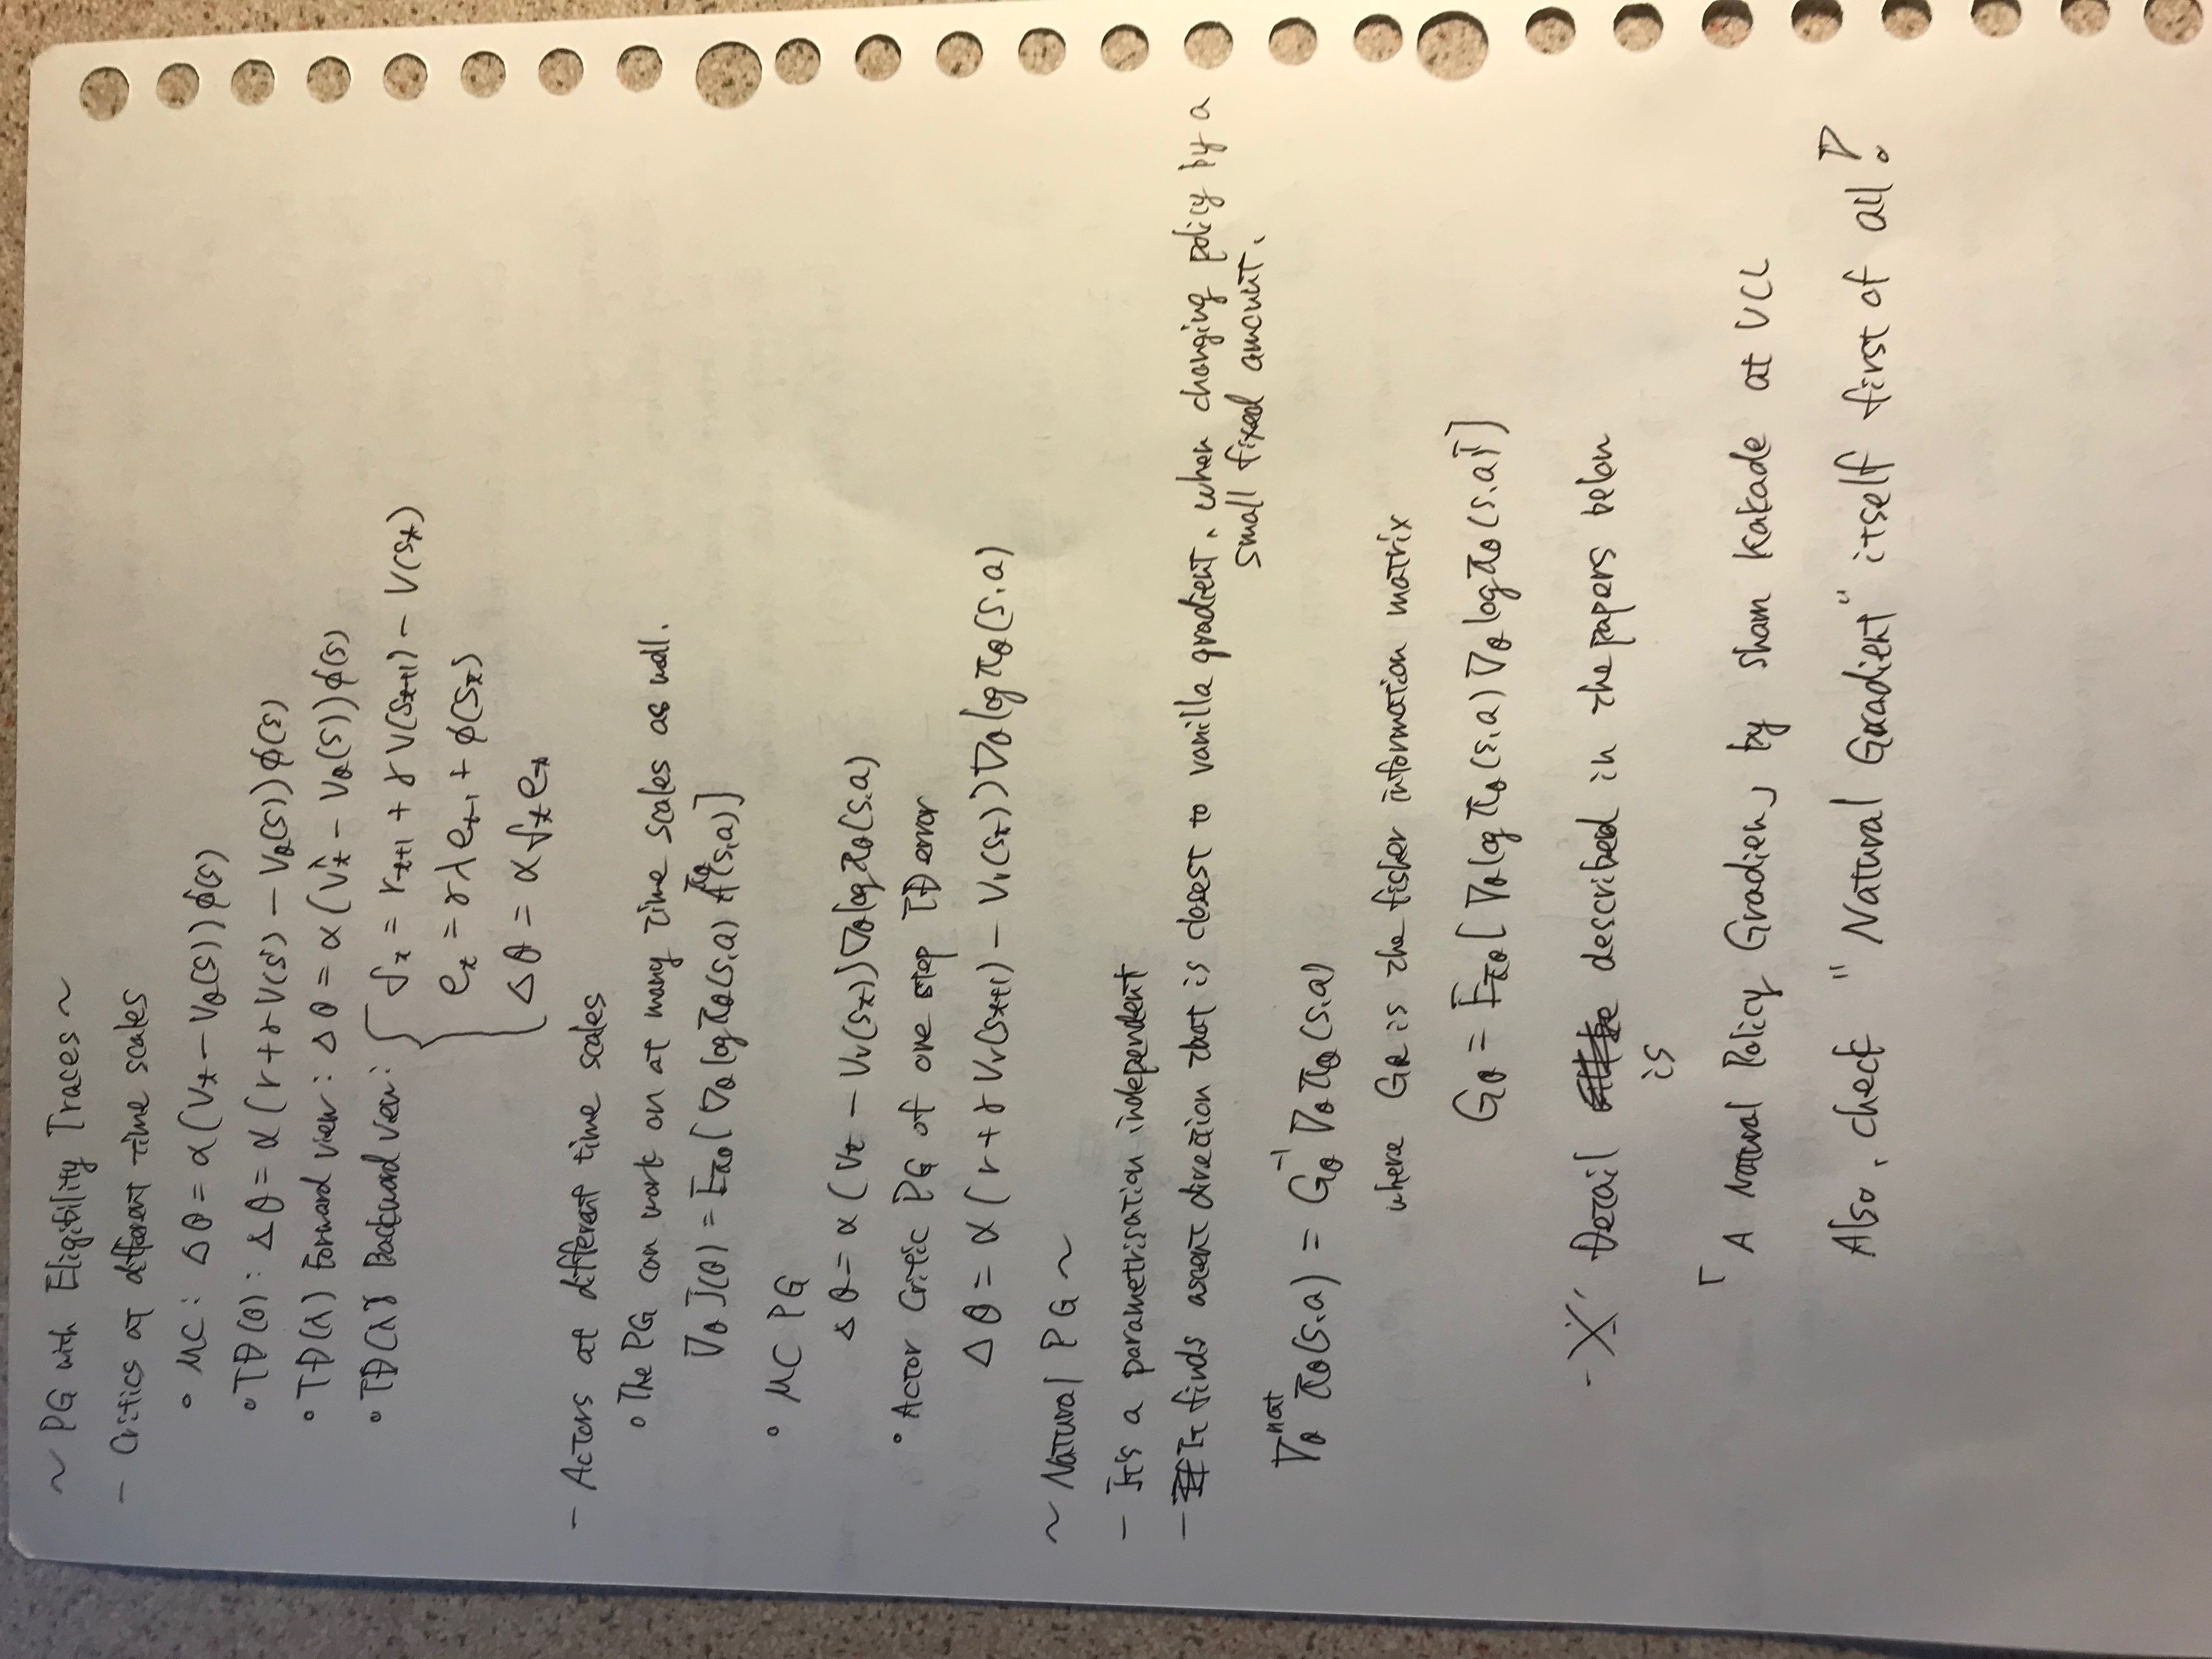 ~ PG with Eligibility Traces ~
- Critics at different time scales
∘ MC : Δθ = α(v_t − V_θ(s))ϕ(s)
∘ TD(0) : Δθ = α(r + γV(s') − V_θ(s))ϕ(s)
∘ TD(λ) Forward view : Δθ = α(v_t^λ − V_θ(s))ϕ(s)
∘ TD(λ) Backward view : { δ_t = r_{t+1} + γV(s_{t+1}) − V(s_t)
e_t = γλe_{t-1} + ϕ(s_t)
Δθ = αδ_t e_t
- Actors at different time scales
∘ The PG can work on at many time scales as well.
∇_θ J(θ) = E_{πθ}[∇_θ log π_θ(s,a) A^{πθ}(s,a)]
∘ MC PG
Δθ = α(v_t − V_v(s_t))∇_θ log π_θ(s,a)
∘ Actor Critic PG of one step TD error
Δθ = α(r + γV_v(s_{t+1}) − V_v(s_t))∇_θ log π_θ(s,a)
~ Natural PG ~
- It's a parametrisation independent
- It finds ascent direction that is closest to vanilla gradient, when changing policy by a
small fixed amount.
∇_θ^{nat} π_θ(s,a) = G_θ^{-1} ∇_θ π_θ(s,a)
where G_θ is the fisher information matrix
G_θ = E_{πθ}[∇_θ log π_θ(s,a) ∇_θ log π_θ(s,a)^T]
- ※ Detail described in the papers below
is
「A Natural Policy Gradien」 by Sham Kakade at UCL
Also, check "Natural Gradient" itself first of all!